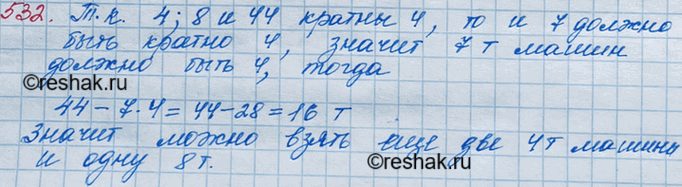 532. Т.к. 4; 8 и 44 кратны 4, то и 7 должно
быть кратно 4, значит 7 т машин
должно быть 4, тогда
©reshak.ru
44 - 7·4 = 44 - 28 = 16 т
Значит можно взять еще две 4т машины
и одну 8т.
©reshak.ru